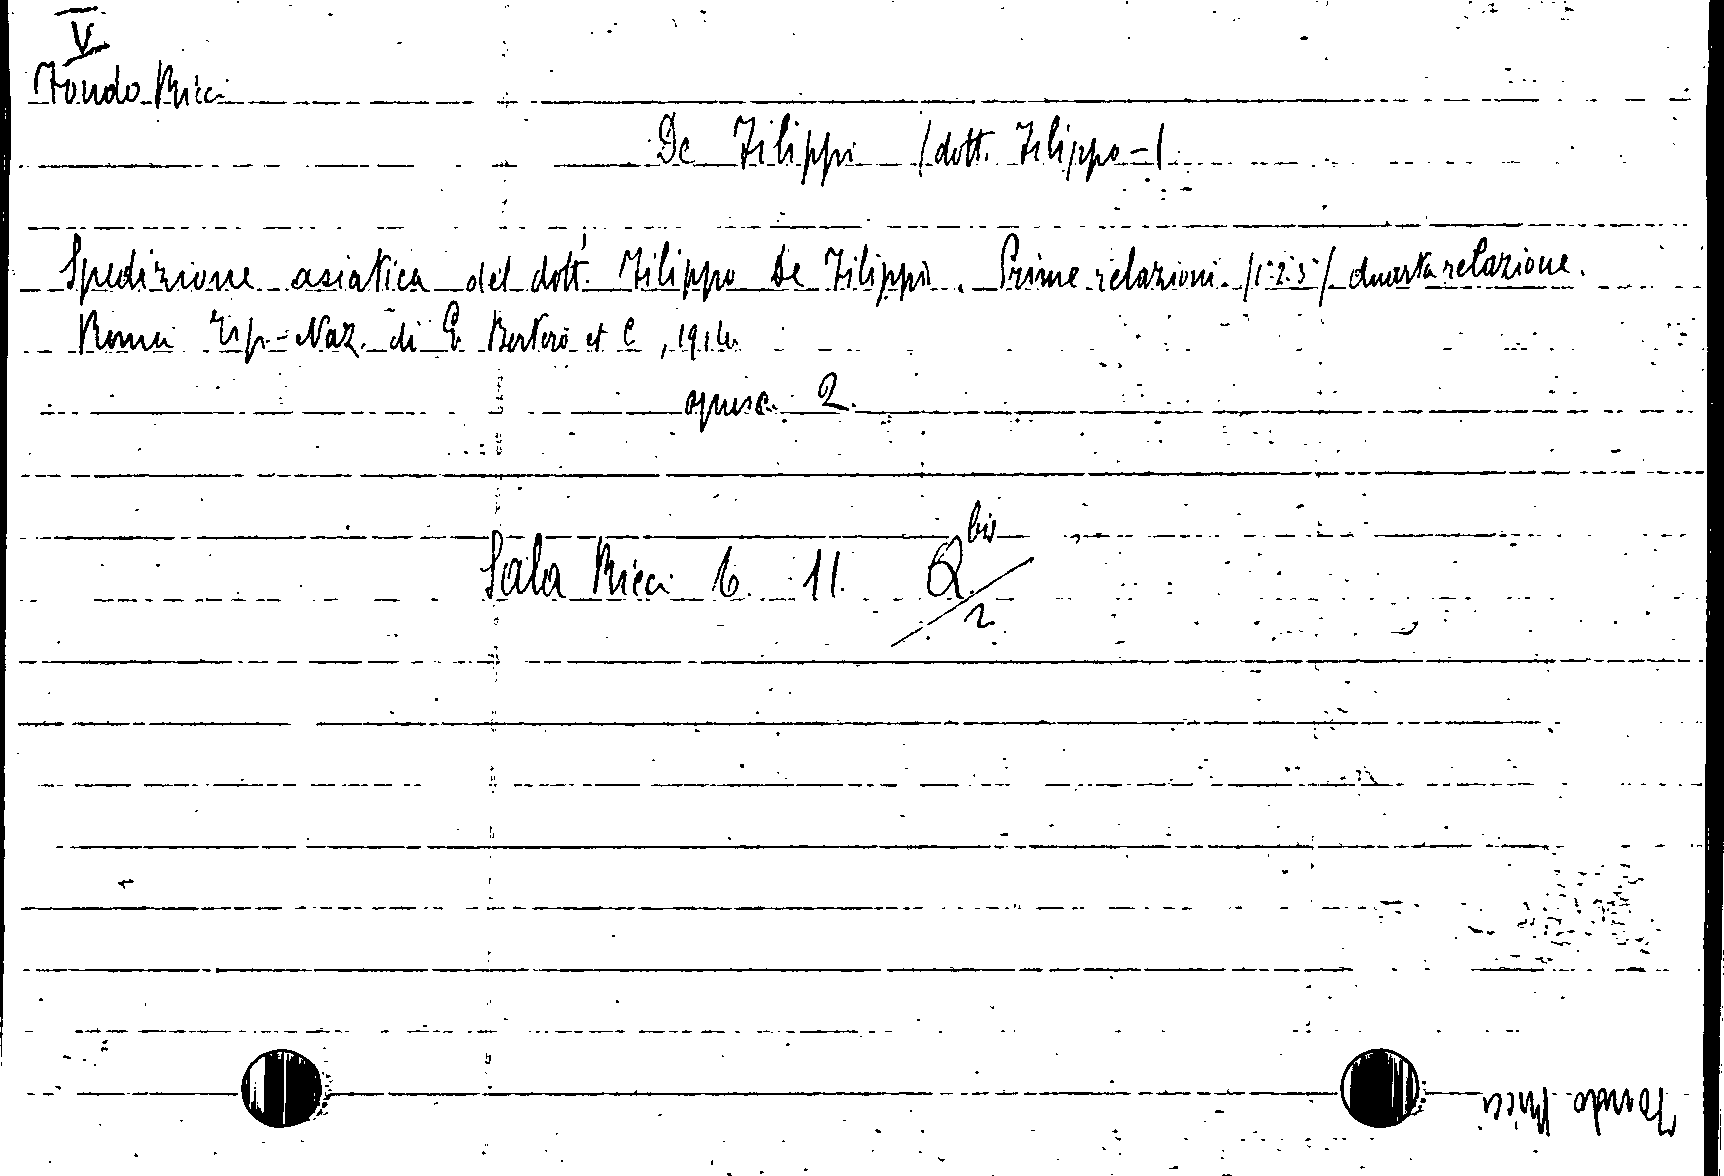 V
Fondo Ricci
De Filippi (dott. Filippo -)
Spedizione asiatica del dott. Filippo De Filippi. Prime relazioni. (1.2.3) Quarta relazione.
Roma Tip. Naz. di G. Bertero et C, 1914
opusc. 2.
Sala Ricci 6. 11. Q bis
2
Fondo Ricci